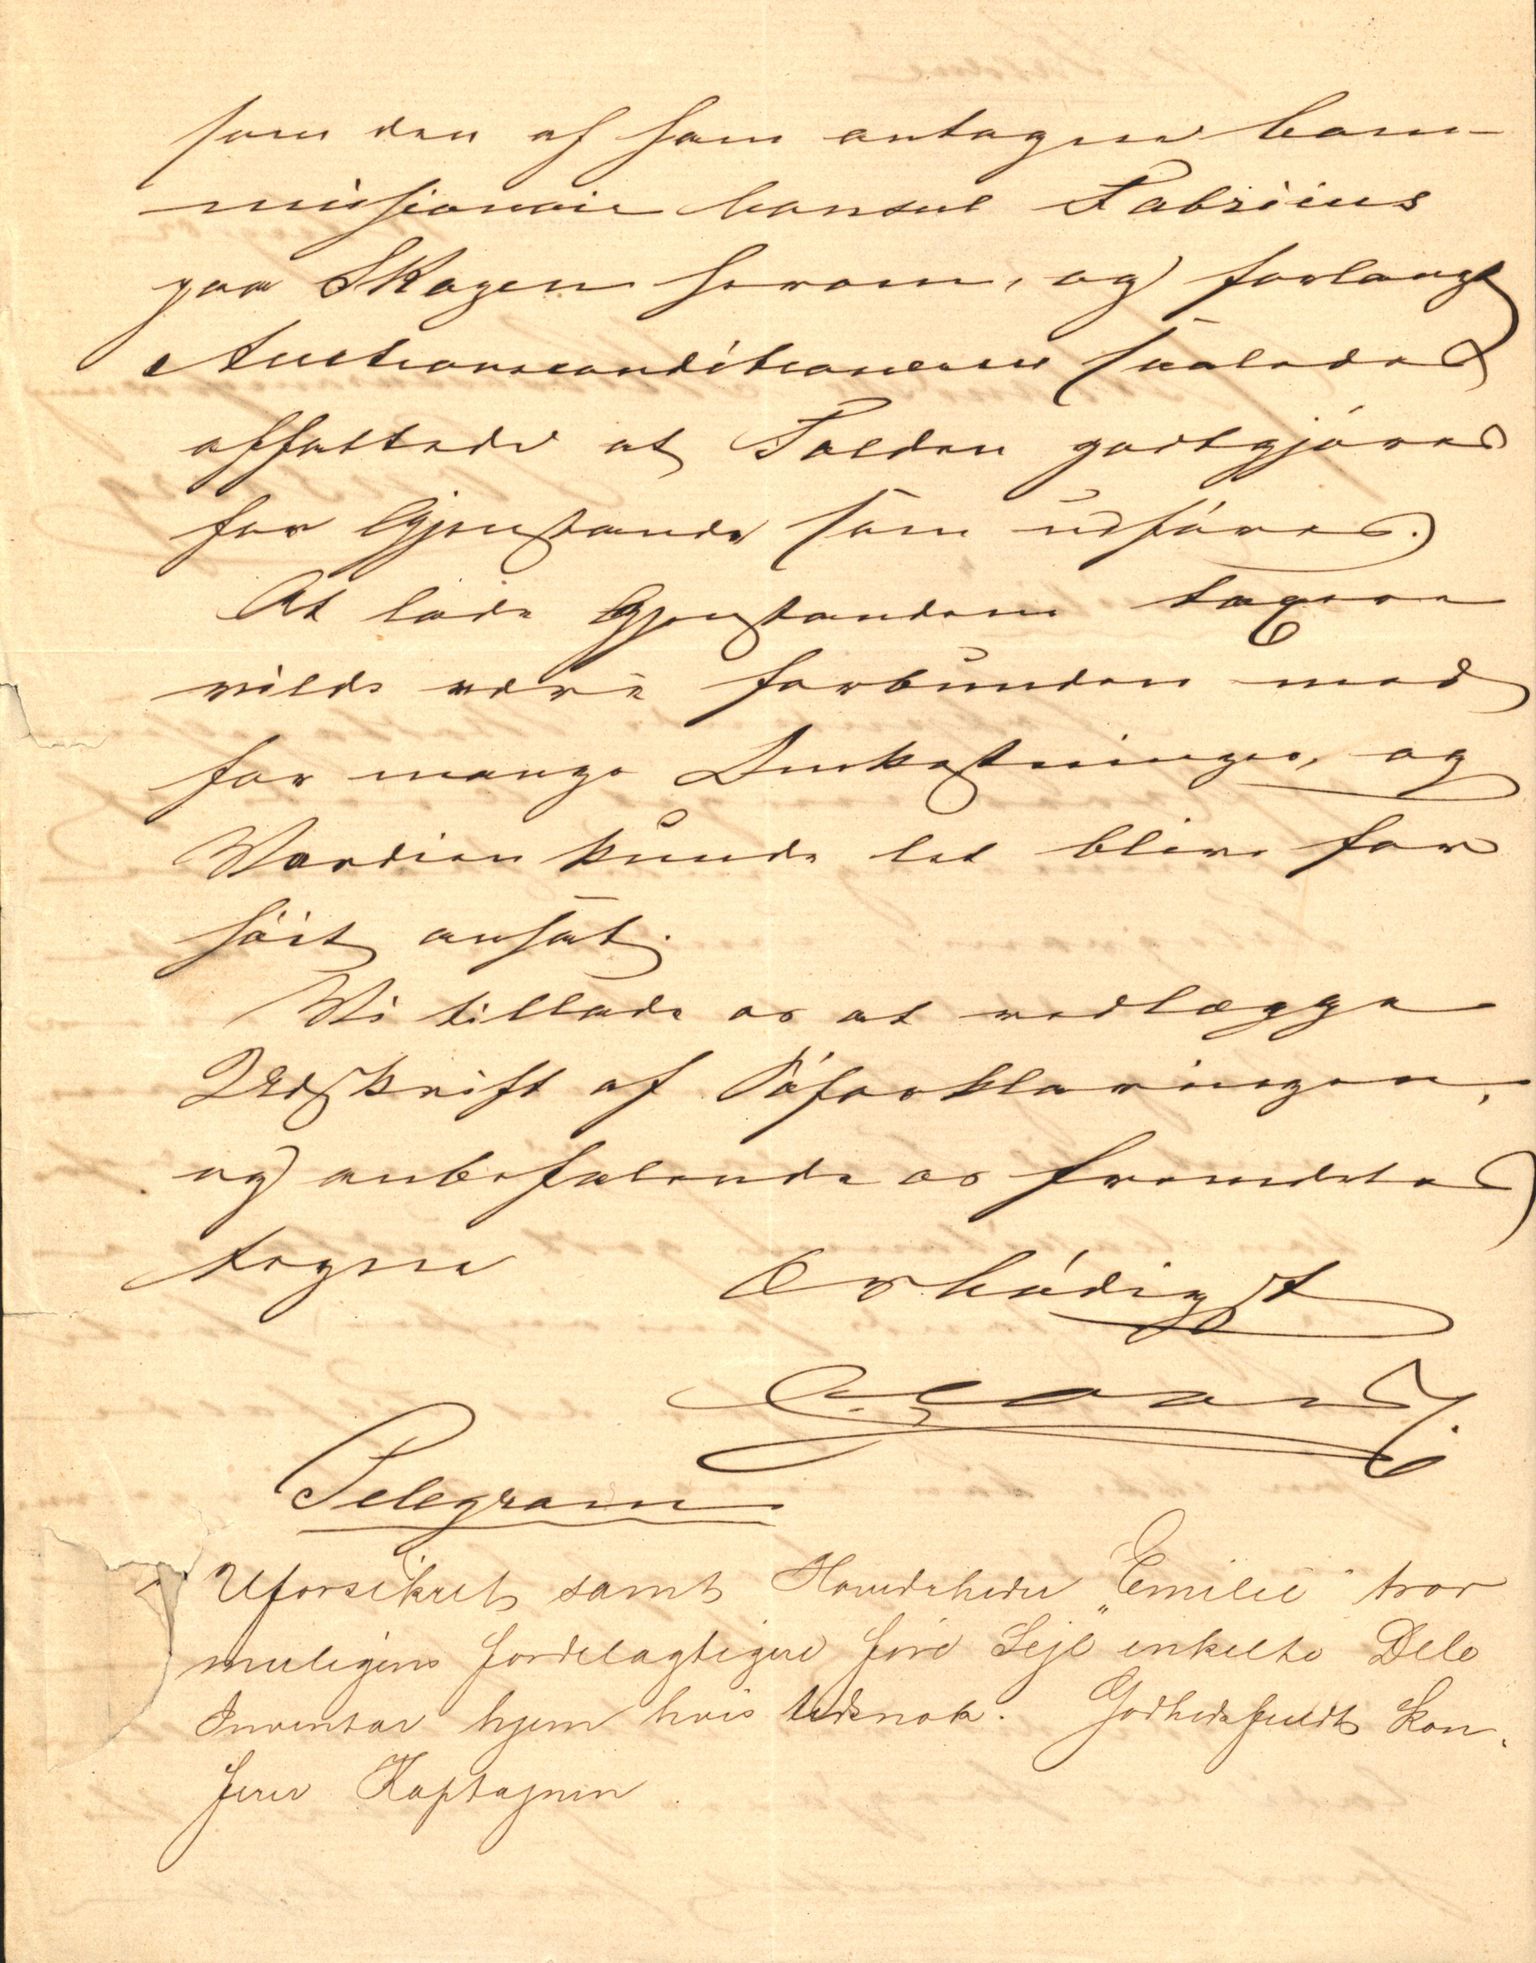 som den af ham antagne Com-
missionair Consul Fabricius
paa Skagen herom, og forlangt
Auctionsconditionerne saaledes
affattede at Tolden godtgjöres
for Gjenstande som udföres.
At lade Gjenstandene taxere
vilde være forbunden med
for mange Omkostninger, og
Værdien kunde let blive for
höit ansat.
Vi tillade os at vedlægge
Udskrift af Söforklaringen,
og anbefalende os fremdeles
tegne
Ærbödigst
Telegram
Uforsikret samt Havndeheder „Emilie" tror
muligens fordelagtigere före Sejl enkelte Dele
Inventar hjem hvis tidsnok. Godhedsfuldt Kon-
ferer Kaptajnen